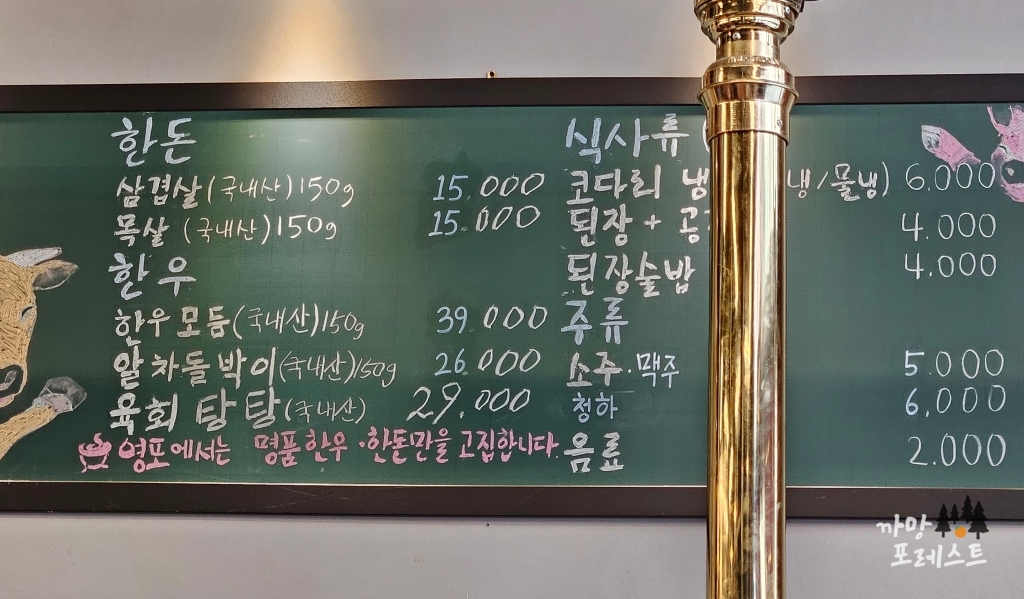 한돈
삼겹살(국내산)150g 15.000
목살 (국내산)150g 15.000
한우
한우모듬(국내산)150g 39.000
알차돌박이(국내산)150g 26.000
육회 탕탕(국내산) 29.000
영포에서는 명품한우·한돈만을 고집합니다.
식사류(
코다리 냉 냉/물냉) 6.000
된장+공 4.000
된장술밥 4.000
주류
소주·맥주 5.000
청하 6,000
음료 2.000
까망
포레스트